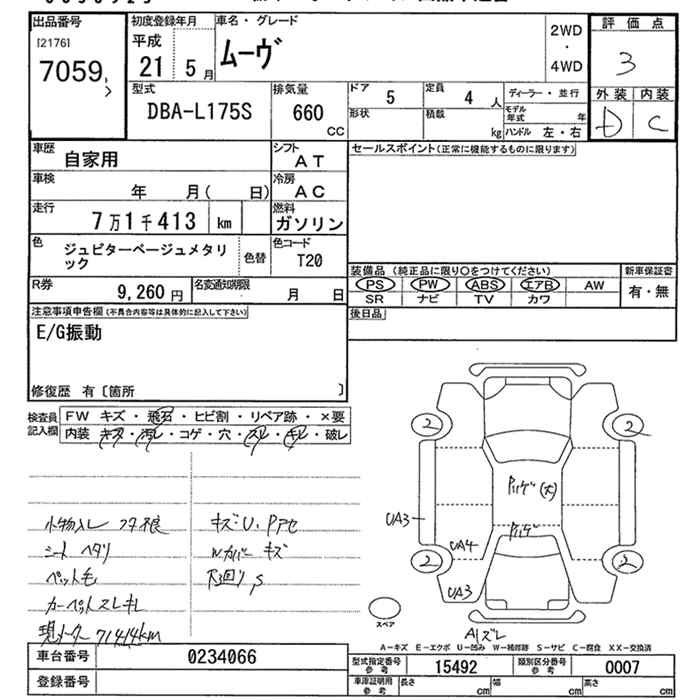 出品番号
[2176]
7059
初度登録年月
平成
21 5月
車名・グレード
ムーヴ
2WD
・
4WD
評価点
3
外装 内装
D C
型式
DBA-L175S
排気量
660
CC
ドア 5
定員 4 人
形状
積載 kg
ディーラー・並行
モデル年式 年
ハンドル 左・右
車歴
自家用
シフト
AT
車検
年 月( 日)
冷房
AC
走行
7万1千413 km
燃料
ガソリン
色
ジュピターベージュメタリ
ック
色替
色コード
T20
R券
9,260円
名変通知期限
月 日
セールスポイント(正常に機能するものに限ります)
装備品(純正品に限り○をつけてください)
PS PW ABS エアB AW
SR ナビ TV カワ
新車保証書
有・無
後日品
注意事項申告欄(不具合内容等は具体的に記入して下さい)
E/G振動
修復歴 有〔箇所 〕
検査員
記入欄
FW キズ・飛石・ヒビ割・リペア跡・×要
内装 キズ・汚レ・コゲ・穴・スレ・キレ・破レ
小物入レ フタ根
シート ヘタリ
ペット毛
カーペットスレキレ
現メーター 71414km
キズ・U、Pアセ
Wカバー キズ
下廻り S
2
2
2
2
UA3
UA4
UA3
Pハゲ(大)
Pハゲ
Aズレ
スペア
A-キズ E-エクボ U-凹み W-補修跡 S-サビ C-腐食 XX-交換済
車台番号 0234066
登録番号
型式指定番号
参考
15492
類別区分番号
参考
0007
車庫証明用
参考
長さ cm 幅 cm 高さ cm